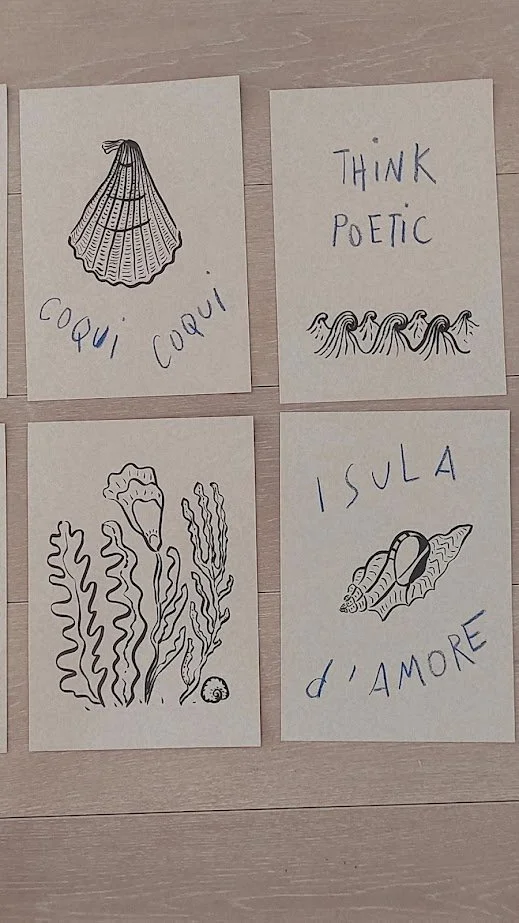 COQUI COQUI
THiNK
POETiC
ISULA
d'AMORE